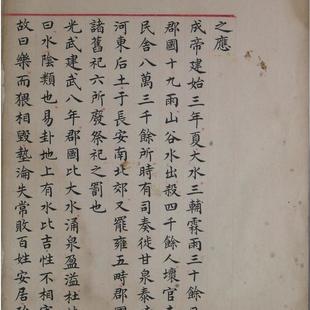 之應
成帝建始三年夏大水三輔霖雨三十餘
郡國十九雨山谷水出殺四千餘人壞官
民舍八萬三千餘所時有司奏徙甘泉泰
河東后土于長安南北郊又罷雍五畤郡
諸舊祀六所廢祭祀之罰也
光武建武八年郡國比大水涌泉盈溢杜
曰水陰類也易卦地上有水比吉性不相
故曰樂而猥相毀墊淪失常敗百姓安居